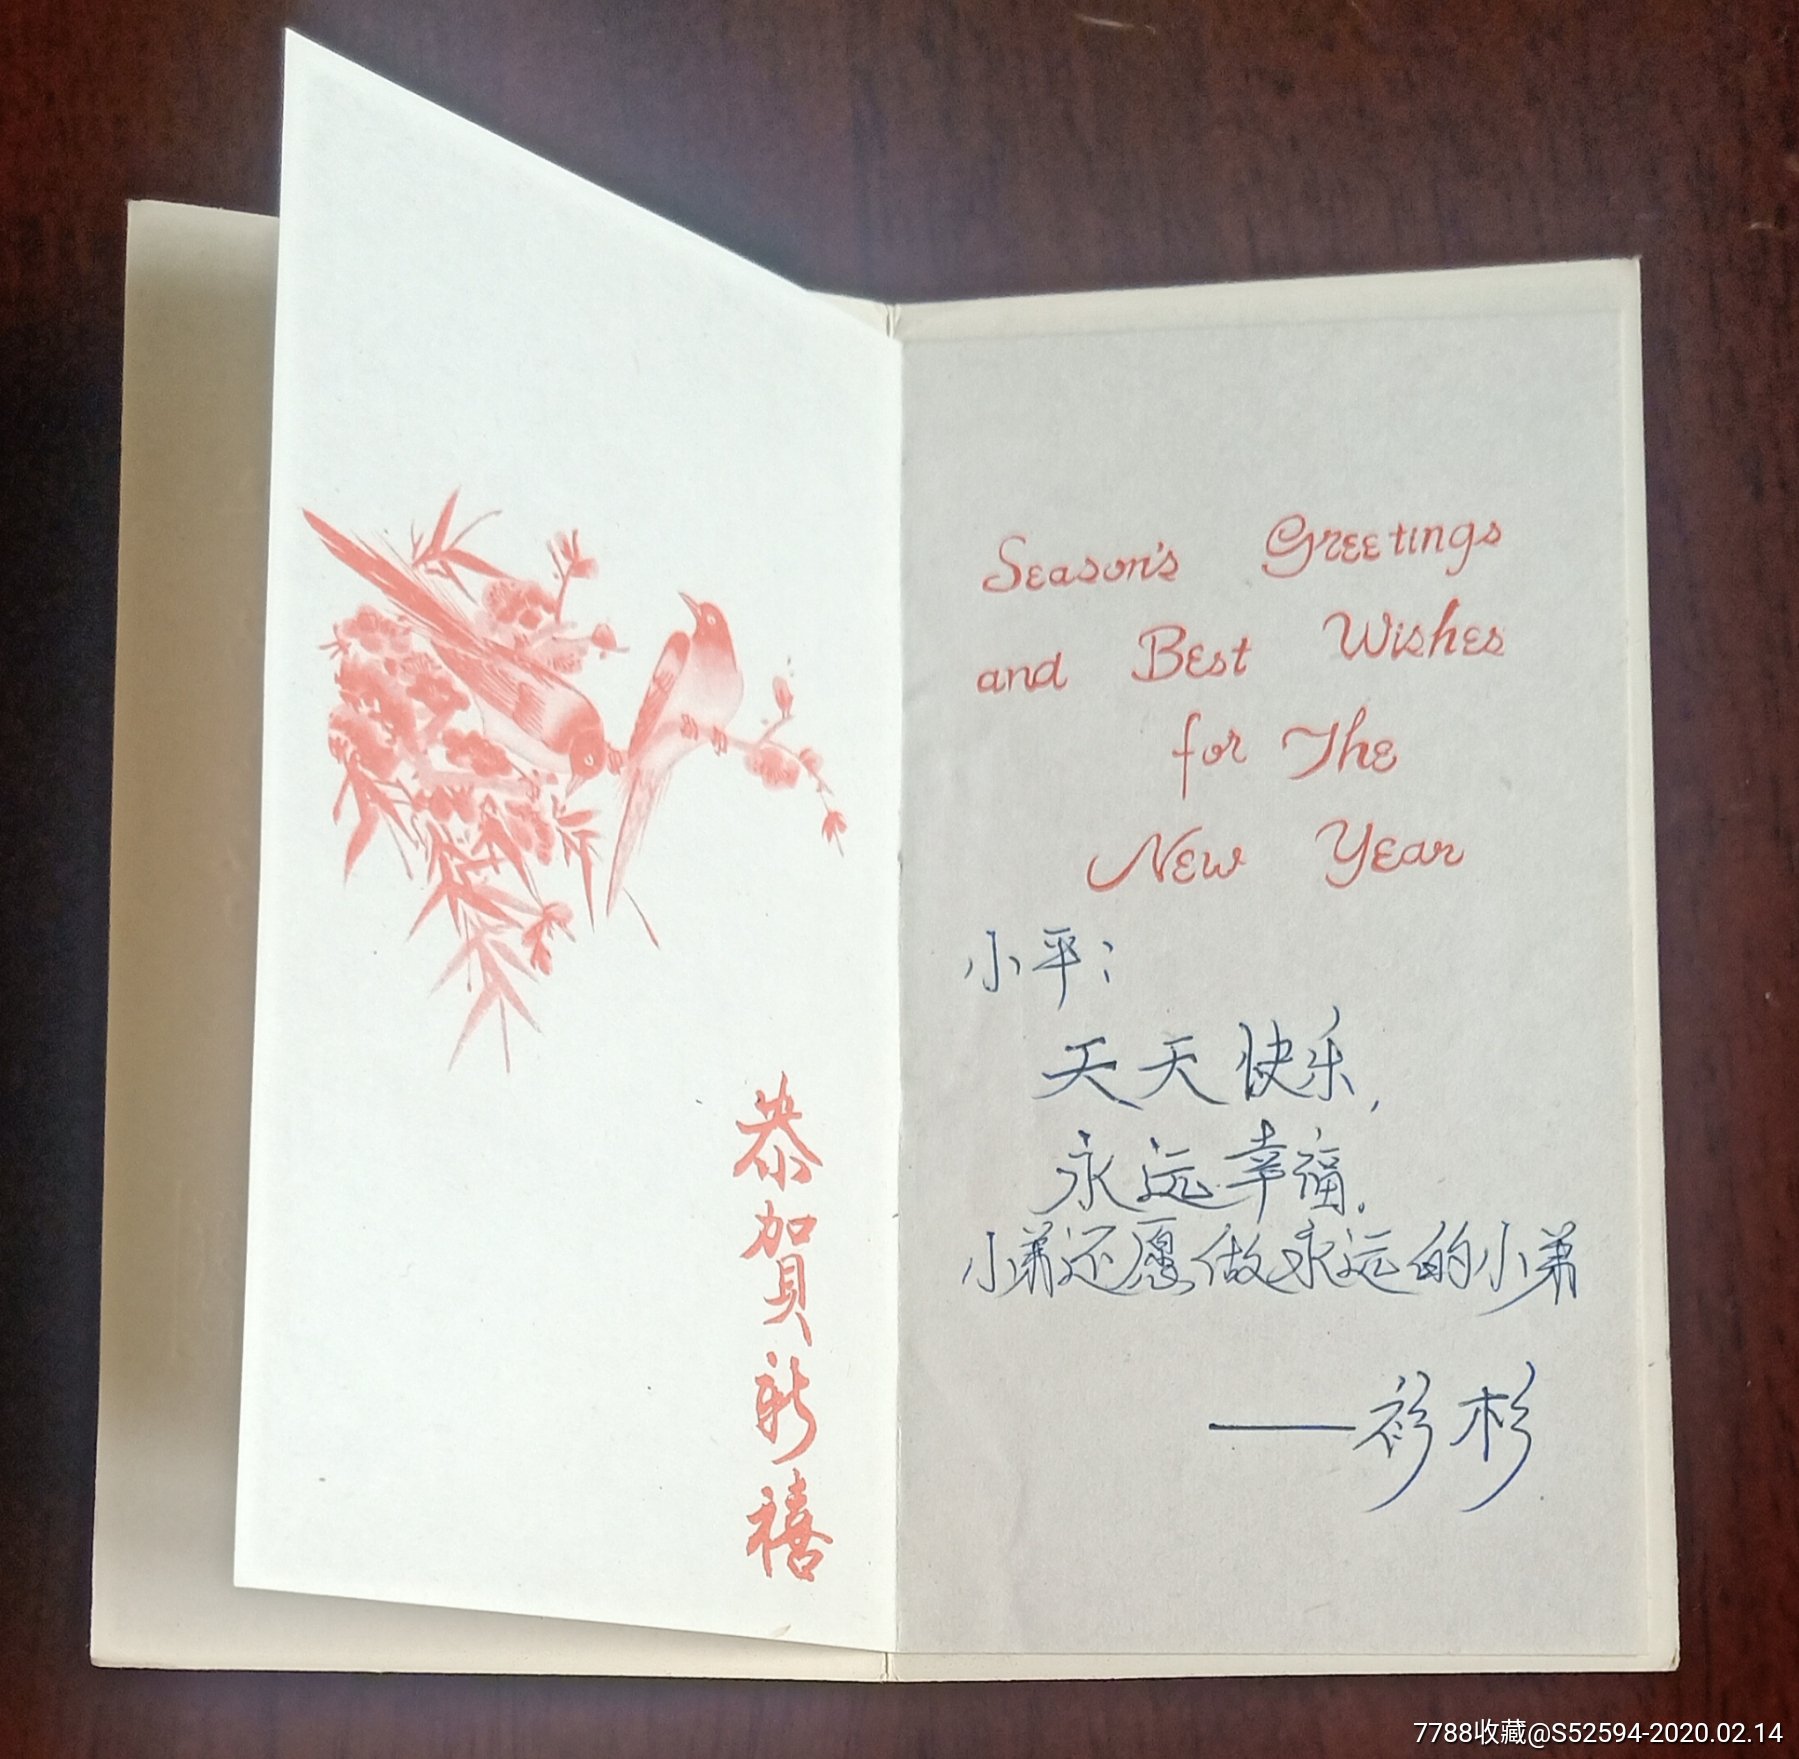 恭賀新禧
Season's Greetings
and Best Wishes
for The
New Year
小平：
天天快乐，
永远幸福。
小弟还愿做永远的小弟
——衫杉
7788收藏@S52594-2020.02.14